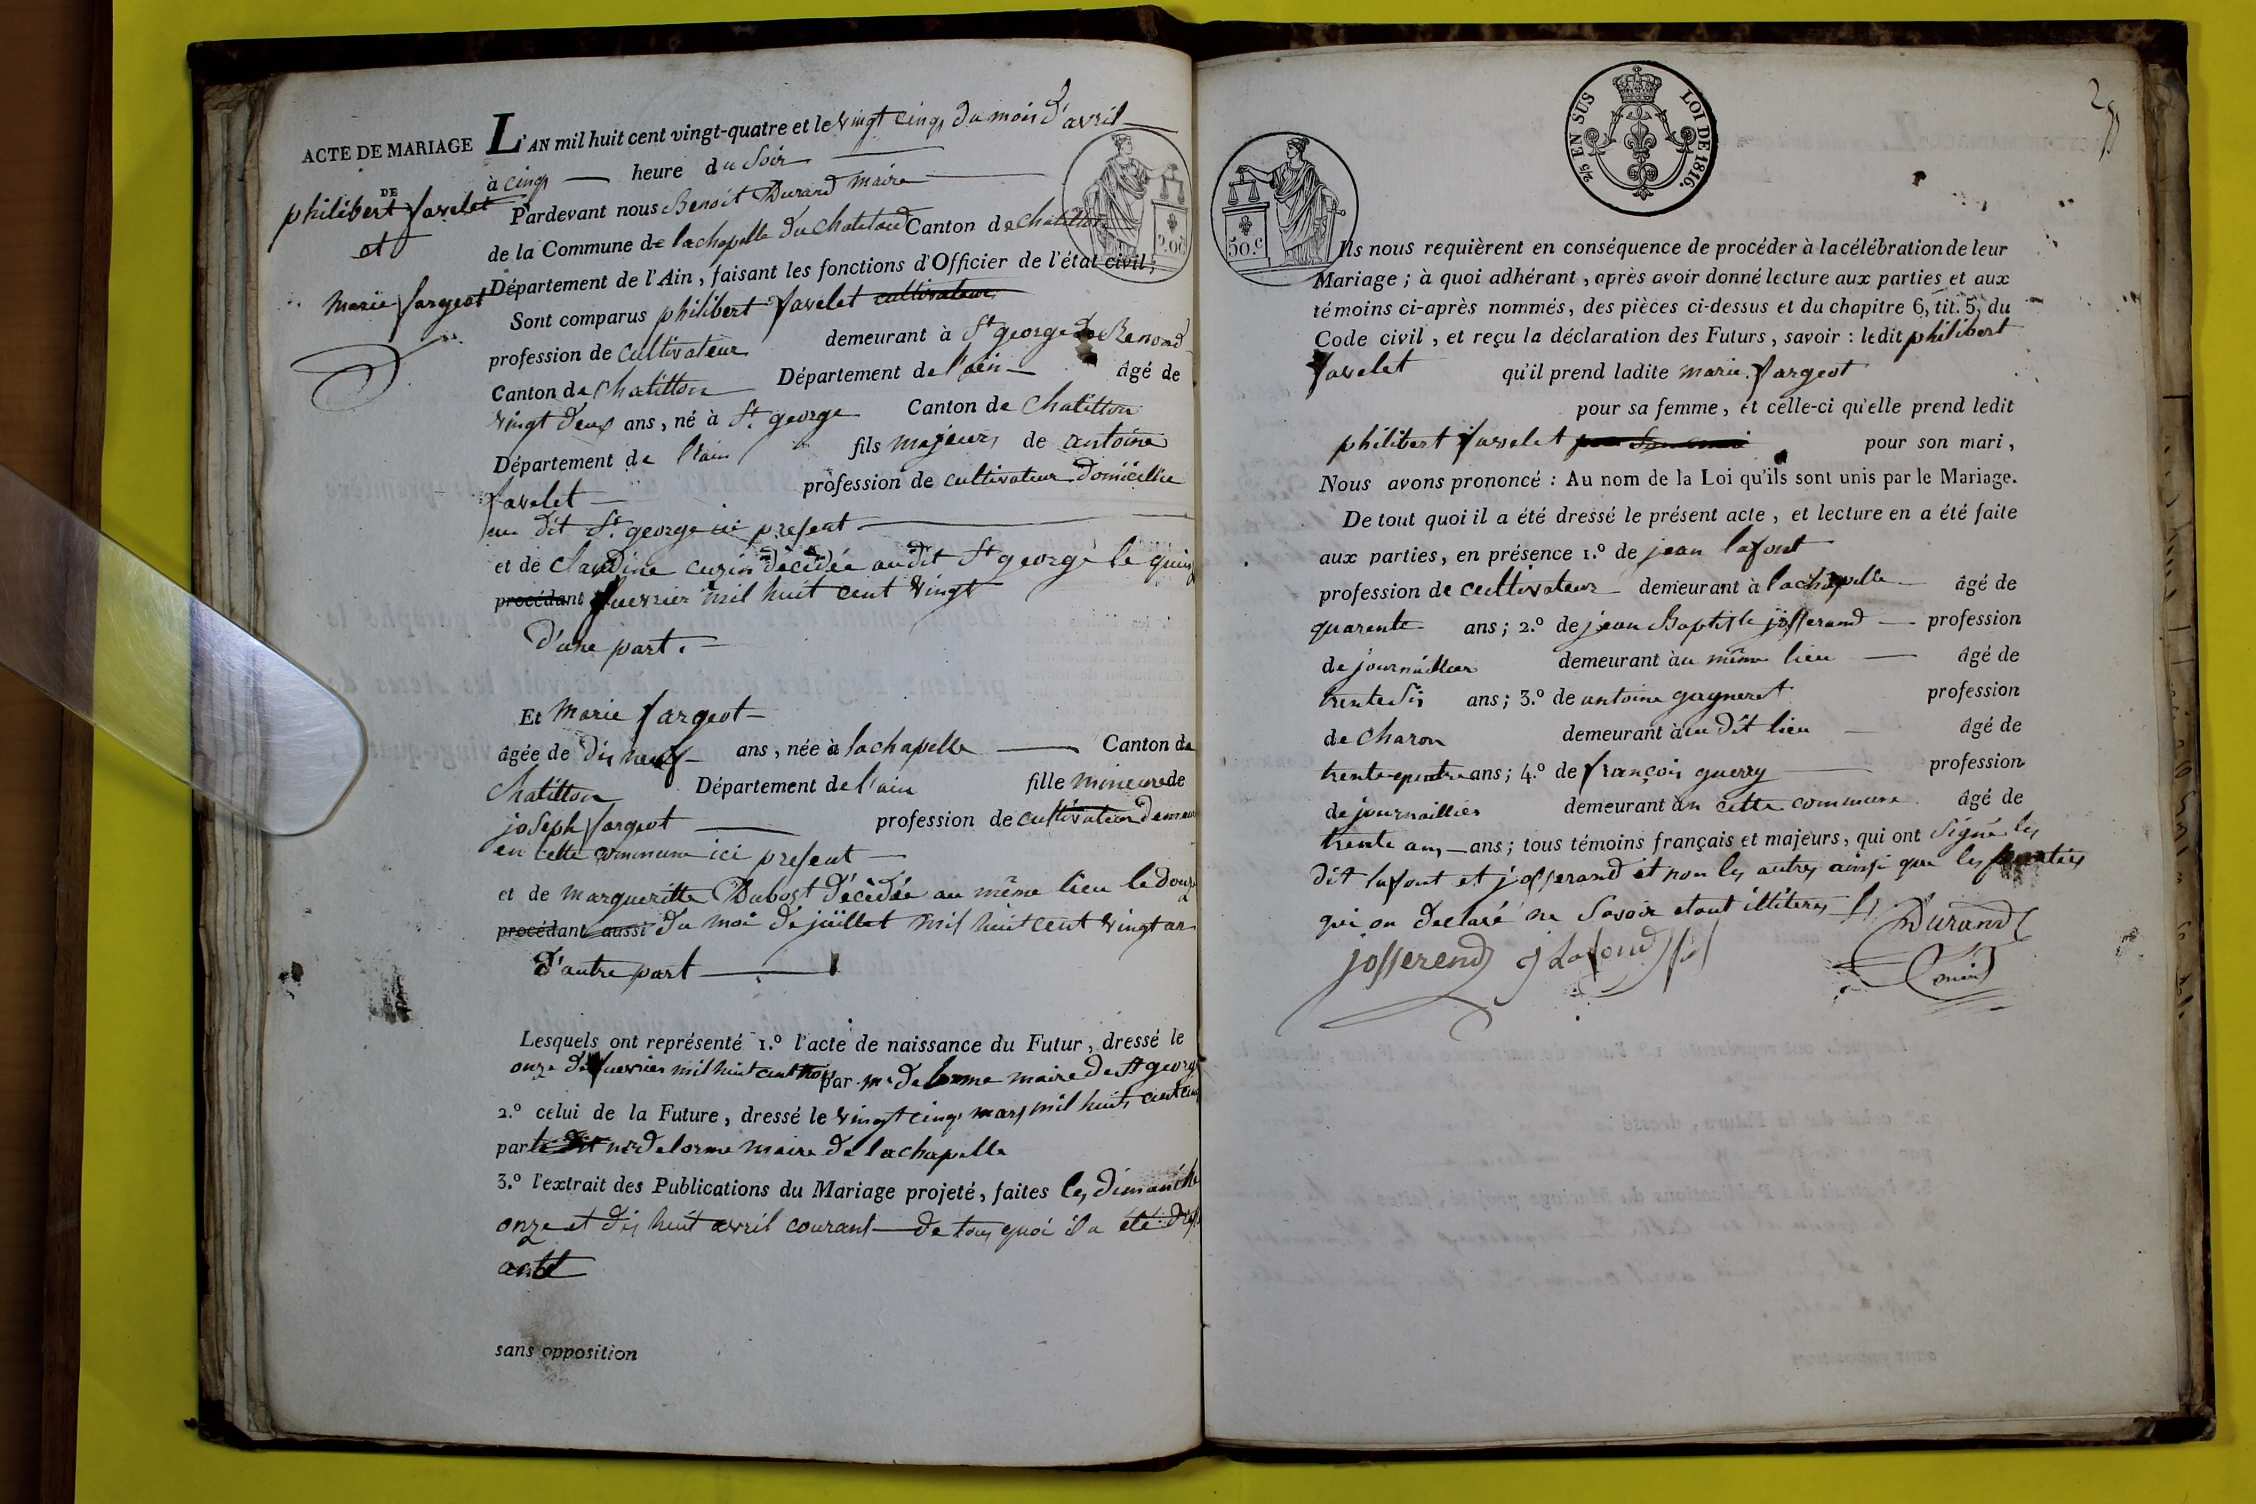 ACTE DE MARIAGE
DE
philibert favelet
et
Marie fargeot
L'AN mil huit cent vingt-quatre et le vingt cinq du mois d'avril
à cinq heure du soir
Pardevant nous Benoit Durand maire
de la Commune de lachapelle du Chatelard Canton de Chatillon
Département de l'Ain, faisant les fonctions d'Officier de l'état civil;
Sont comparus philibert favelet cultivateur
profession de Cultivateur demeurant à St george de Renond
Canton de Chatillon Département de l'ain âgé de
vingt deux ans, né à St george Canton de Chatillon
Département de l'ain fils majeur de antoine
favelet profession de cultivateur domicillie
au dit St george ici present
et de Claudine curin décédée audit St george le quinz
procédant fuevrier mil huit cent vingt
D'une part.
Et Marie fargeot
âgée de dis neuf ans, née à lachapelle Canton de
Chatillon Département de l'ain fille mineure de
joseph fargeot profession de cultivateur demeur
en cette commune ici present
et de margueritte Dubost décèdée au même lieu le douz
procédant aussi du moi de juillet mil huit cent vingt un
D'autre part
Lesquels ont représenté 1.º l'acte de naissance du Futur, dressé le
onze de fuevrier mil huit cent trois par mr delorme maire de St george
2.º celui de la Future, dressé le vingt cinq mars mil huit cent cinq
par le dit mr delorme maire de lachapelle
3.º l'extrait des Publications du Mariage projeté, faites les dimanche
onze et dis huit avril courant de tous quoi il a été dressé
acte
sans opposition
2.00
50.c
2/5 EN SUS LOI DE 1816.
Ils nous requièrent en conséquence de procéder à la célébration de leur
Mariage; à quoi adhérant, après avoir donné lecture aux parties et aux
témoins ci-après nommés, des pièces ci-dessus et du chapitre 6, tit. 5, du
Code civil, et reçu la déclaration des Futurs, savoir: ledit philibert
favelet qu'il prend ladite marie fargeot
pour sa femme, et celle-ci qu'elle prend ledit
philibert favelet pour son mari pour son mari,
Nous avons prononcé: Au nom de la Loi qu'ils sont unis par le Mariage.
De tout quoi il a été dressé le présent acte, et lecture en a été faite
aux parties, en présence 1.º de jean lafont
profession de cultivateur demeurant à lachapelle âgé de
quarente ans; 2.º de jean Baptiste josserand profession
de journaillier demeurant àu même lieu âgé de
trente sis ans; 3.º de antoine gayneret profession
de charon demeurant àu dit lieu âgé de
trente quatre ans; 4.º de françois guerry profession
de journaillier demeurant àn cette commune âgé de
trente ans ans; tous témoins français et majeurs, qui ont signé les
dit lafont et josserand et non les autres ainsi que les parties
qui on declaré ne savoir etant illiteres
Durand
josserend j Lafond
maire